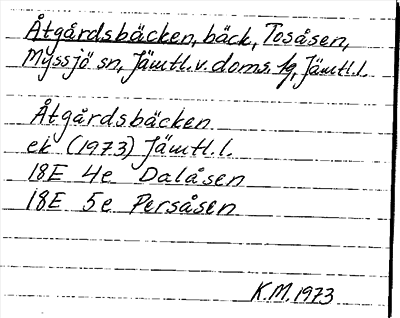 Åtgårdsbäcken, bäck, Tosåsen,
Myssjö sn, Jämtl.v. doms. fg, Jämtl.l.
Åtgårdsbäcken
ek (1973) Jämtl.l.
18E 4e Dalåsen
18E 5e Persåsen
K.M. 1973